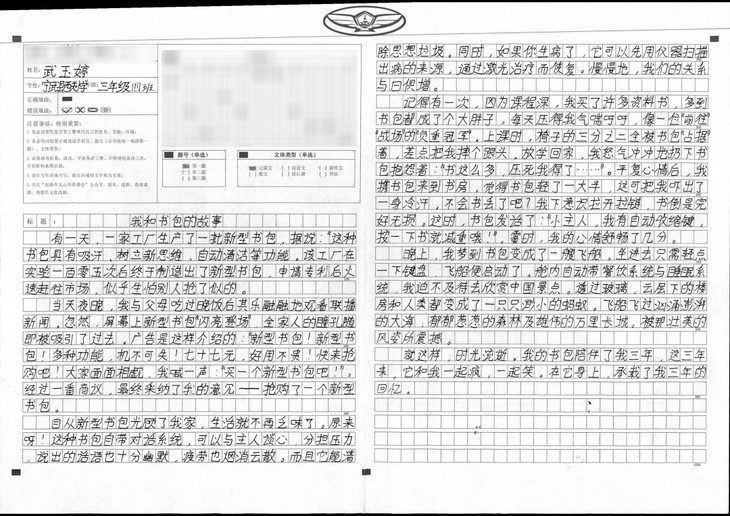 姓名：武玉婷
三年级
正确填涂：
错误填涂：
注意事项，特别重要：
题号（单选）
文体类型（单选）
第一题
第二题
第三题
记叙文
议论文
说明文
散文
读后感
书信
标题：我和书包的故事
有一天，一家工厂生产了一批新型书包，据说：“这种
书包具有吸汗、树立新思维、自动清洁等功能。该工厂在
实验一百零五次后终于制造出了新型书包，申请专利后火
速赶往市场，似乎生怕别人抢了似的。
当天夜晚，我与父母吃过晚饭后其乐融融地观看联播
新闻，忽然，屏幕上新型书包“闪亮登场”，全家人的瞳孔随
即被吸引了过去。广告是这样介绍的：“新型书包！新型书
包！多种功能，机不可失！七十七元，好用不贵！快来抢
购吧！”大家面面相觑，我喊一声：“买一个新型书包吧！”。
经过一番商议，最终采纳了我的意见——抢购了一个新型
书包。
自从新型书包光顾了我家，生活就不再乏味了。原来
呀！这种书包自带对话系统，可以与主人谈心，分担压力
，说出的话语也十分幽默，疲劳也烟消云散。而且它能清
除思想垃圾。同时，如果你生病了，它可以先用仪器扫描
出病的来源，通过激光治疗而恢复。慢慢地，我们的关系
与日俱增。
记得有一次，因为课程深，我买了许多资料书，多到
书包都成了个大胖子，每天压得我气喘吁吁，像一位“前往
”战场的“负重冠军”。上课时，椅子的三分之二全被书包“占据
着，差点把我摔个跟头。放学回家，我怒气冲冲地扔下书
包抱怨着：“书这么多，压死我得了……”。平复心情后，我
撑书包来到书房，觉得书包轻了一大半，这可把我吓出了
一身冷汗，不会书丢了吧？我下意识拉开拉链，书倒是完
好无损。这时，书包发话了：“小主人，我有自动收缩键，
按一下书就减重哦！”。霎时，我的心情舒畅了几分。
晚上，我梦到书包变成了一艘飞船。坐进去只需轻点
一下键盘，飞船便启动了。舱内自动带餐饮系统与睡眠系
统，我迫不及待去欣赏中国景点。透过玻璃，云层下的楼
房和人类都变成了一只只渺小的蚂蚁。飞船飞过汹涌澎湃
的大海，郁郁葱葱的森林及雄伟的万里长城。被那壮美的
风姿所震撼。
就这样，时光流逝。我的书包陪伴了我三年，这三年
来，它和我一起疯，一起笑。在它身上，承载了我三年的
回忆。